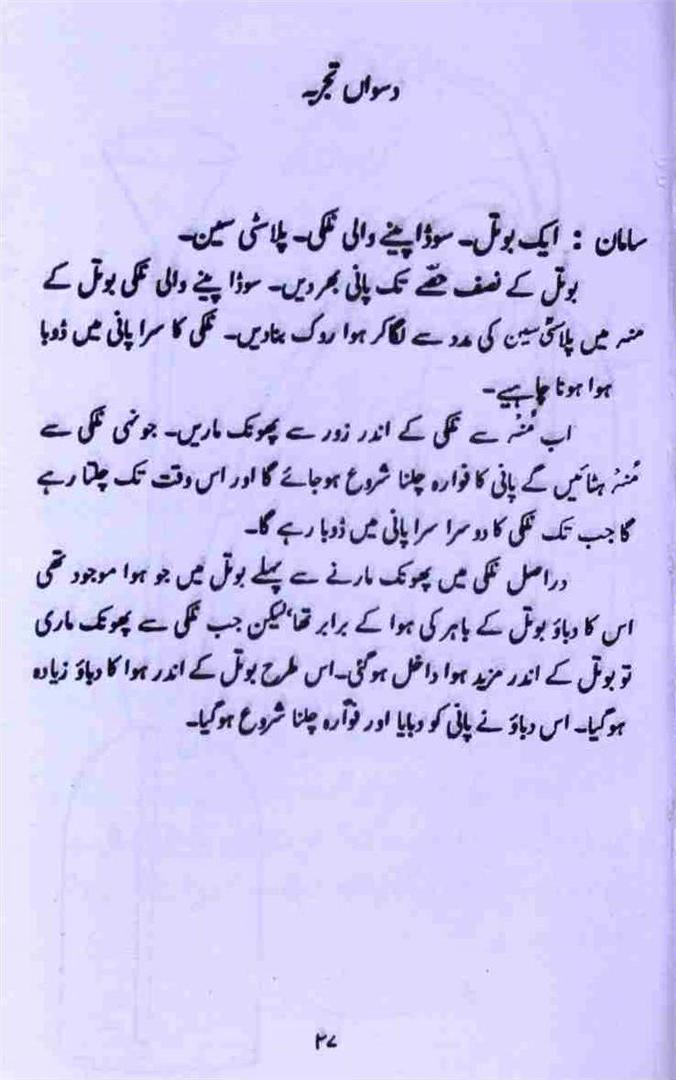 دسواں تجربہ
سامان : ایک بوتل۔ سوڈا پینے والی نلکی۔ پلاسٹی سین۔
بوتل کے نصف حصّے تک پانی بھر دیں۔ سوڈا پینے والی نلکی بوتل کے
منہ میں پلاسٹی سین کی مدد سے لگا کر ہوا روک بنادیں۔ نلکی کا سرا پانی میں ڈوبا
ہوا ہونا چاہیے۔
اب مُنہ سے نلکی کے اندر زور سے پھونک ماریں۔ جونہی نلکی سے
مُنہ ہٹائیں گے پانی کا فوارہ چلنا شروع ہوجائے گا اور اس وقت تک چلتا رہے
گا جب تک نلکی کا دوسرا سرا پانی میں ڈوبا رہے گا۔
دراصل نلکی میں پھونک مارنے سے پہلے بوتل میں جو ہوا موجود تھی
اس کا دباؤ بوتل کے باہر کی ہوا کے برابر تھا، لیکن جب نلکی سے پھونک ماری
تو بوتل کے اندر مزید ہوا داخل ہوگئی۔ اس طرح بوتل کے اندر ہوا کا دباؤ زیادہ
ہوگیا۔ اس دباؤ نے پانی کو دبایا اور فوّارہ چلنا شروع ہوگیا۔
۲۷